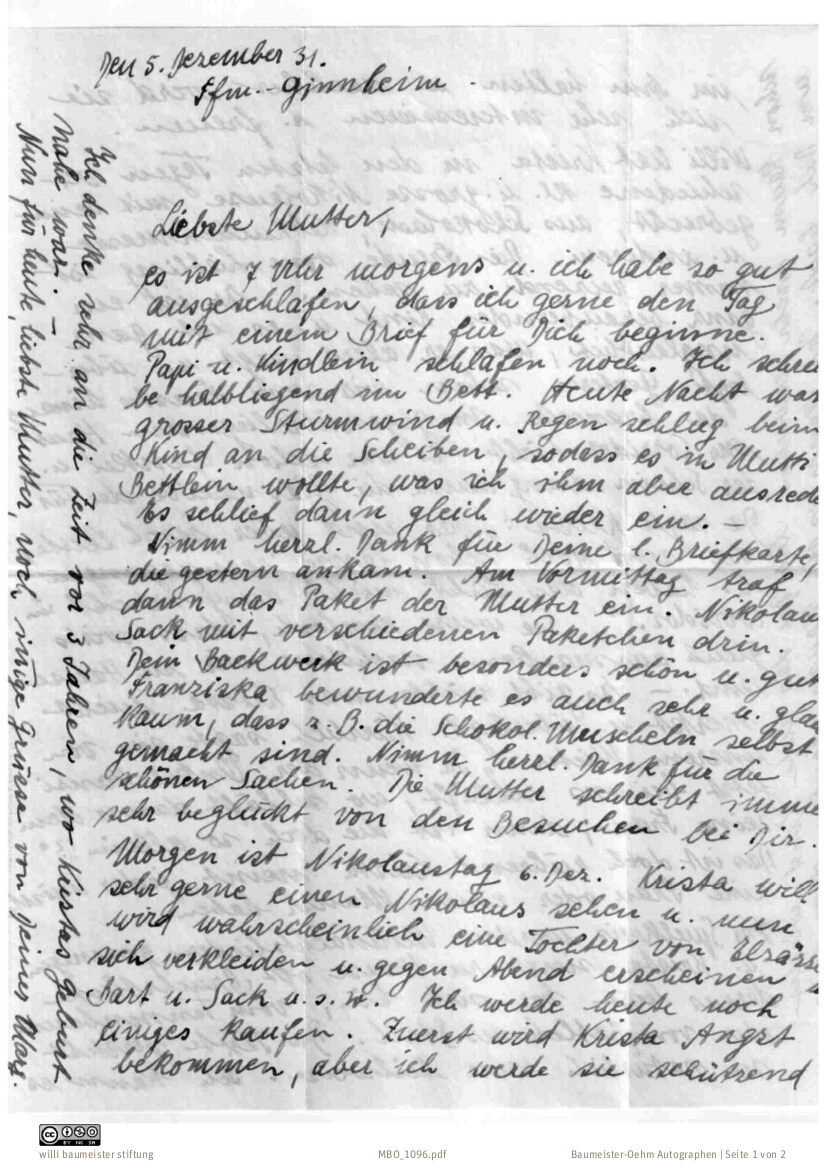 Den 5. Dezember 31.
Ffm.-Ginnheim.
Liebste Mutter,
es ist 7 Uhr morgens u. ich habe so gut
ausgeschlafen, dass ich gerne den Tag
mit einem Brief für Dich beginne.
Papi u. Kindlein schlafen noch. Ich schrei
be halbliegend im Bett. Heute Nacht war
grosser Sturmwind u. Regen schlug beim
Kind an die Scheiben, sodass es in Mutti
Bettlein wollte, was ich ihm aber ausrede
Es schlief dann gleich wieder ein. –
Nimm herzl. Dank für Deine l. Briefkarte,
die gestern ankam. Am Vormittag traf
dann das Paket der Mutter ein. Nikolau
Sack mit verschiedenen Paketchen drin.
Dein Backwerk ist besonders schön u. gut
Franziska bewunderte es auch sehr u. glau
kaum, dass z. B. die Schokol. Muscheln selbst
gemacht sind. Nimm herzl. Dank für die
schönen Sachen. Die Mutter schreibt imme
sehr beglückt von den Besuchen bei Dir.
Morgen ist Nikolaustag 6. Dez. Krista will
sehr gerne einen Nikolaus sehen u. nun
wird wahrscheinlich eine Tochter von Elsässe
sich verkleiden u. gegen Abend erscheinen
Bart u. Sack u. s. w. Ich werde heute noch
einiges kaufen. Zuerst wird Krista Angst
bekommen, aber ich werde sie schützend
Ich denke sehr an die Zeit vor 3 Jahren, wo Kristas Geburt
nahe war. –
Nun für heute, liebste Mutter, noch innige Grüsse von Deiner Marg.
willi baumeister stiftung
MBO_1096.pdf
Baumeister-Oehm Autographen | Seite 1 von 2
CC BY NC SA